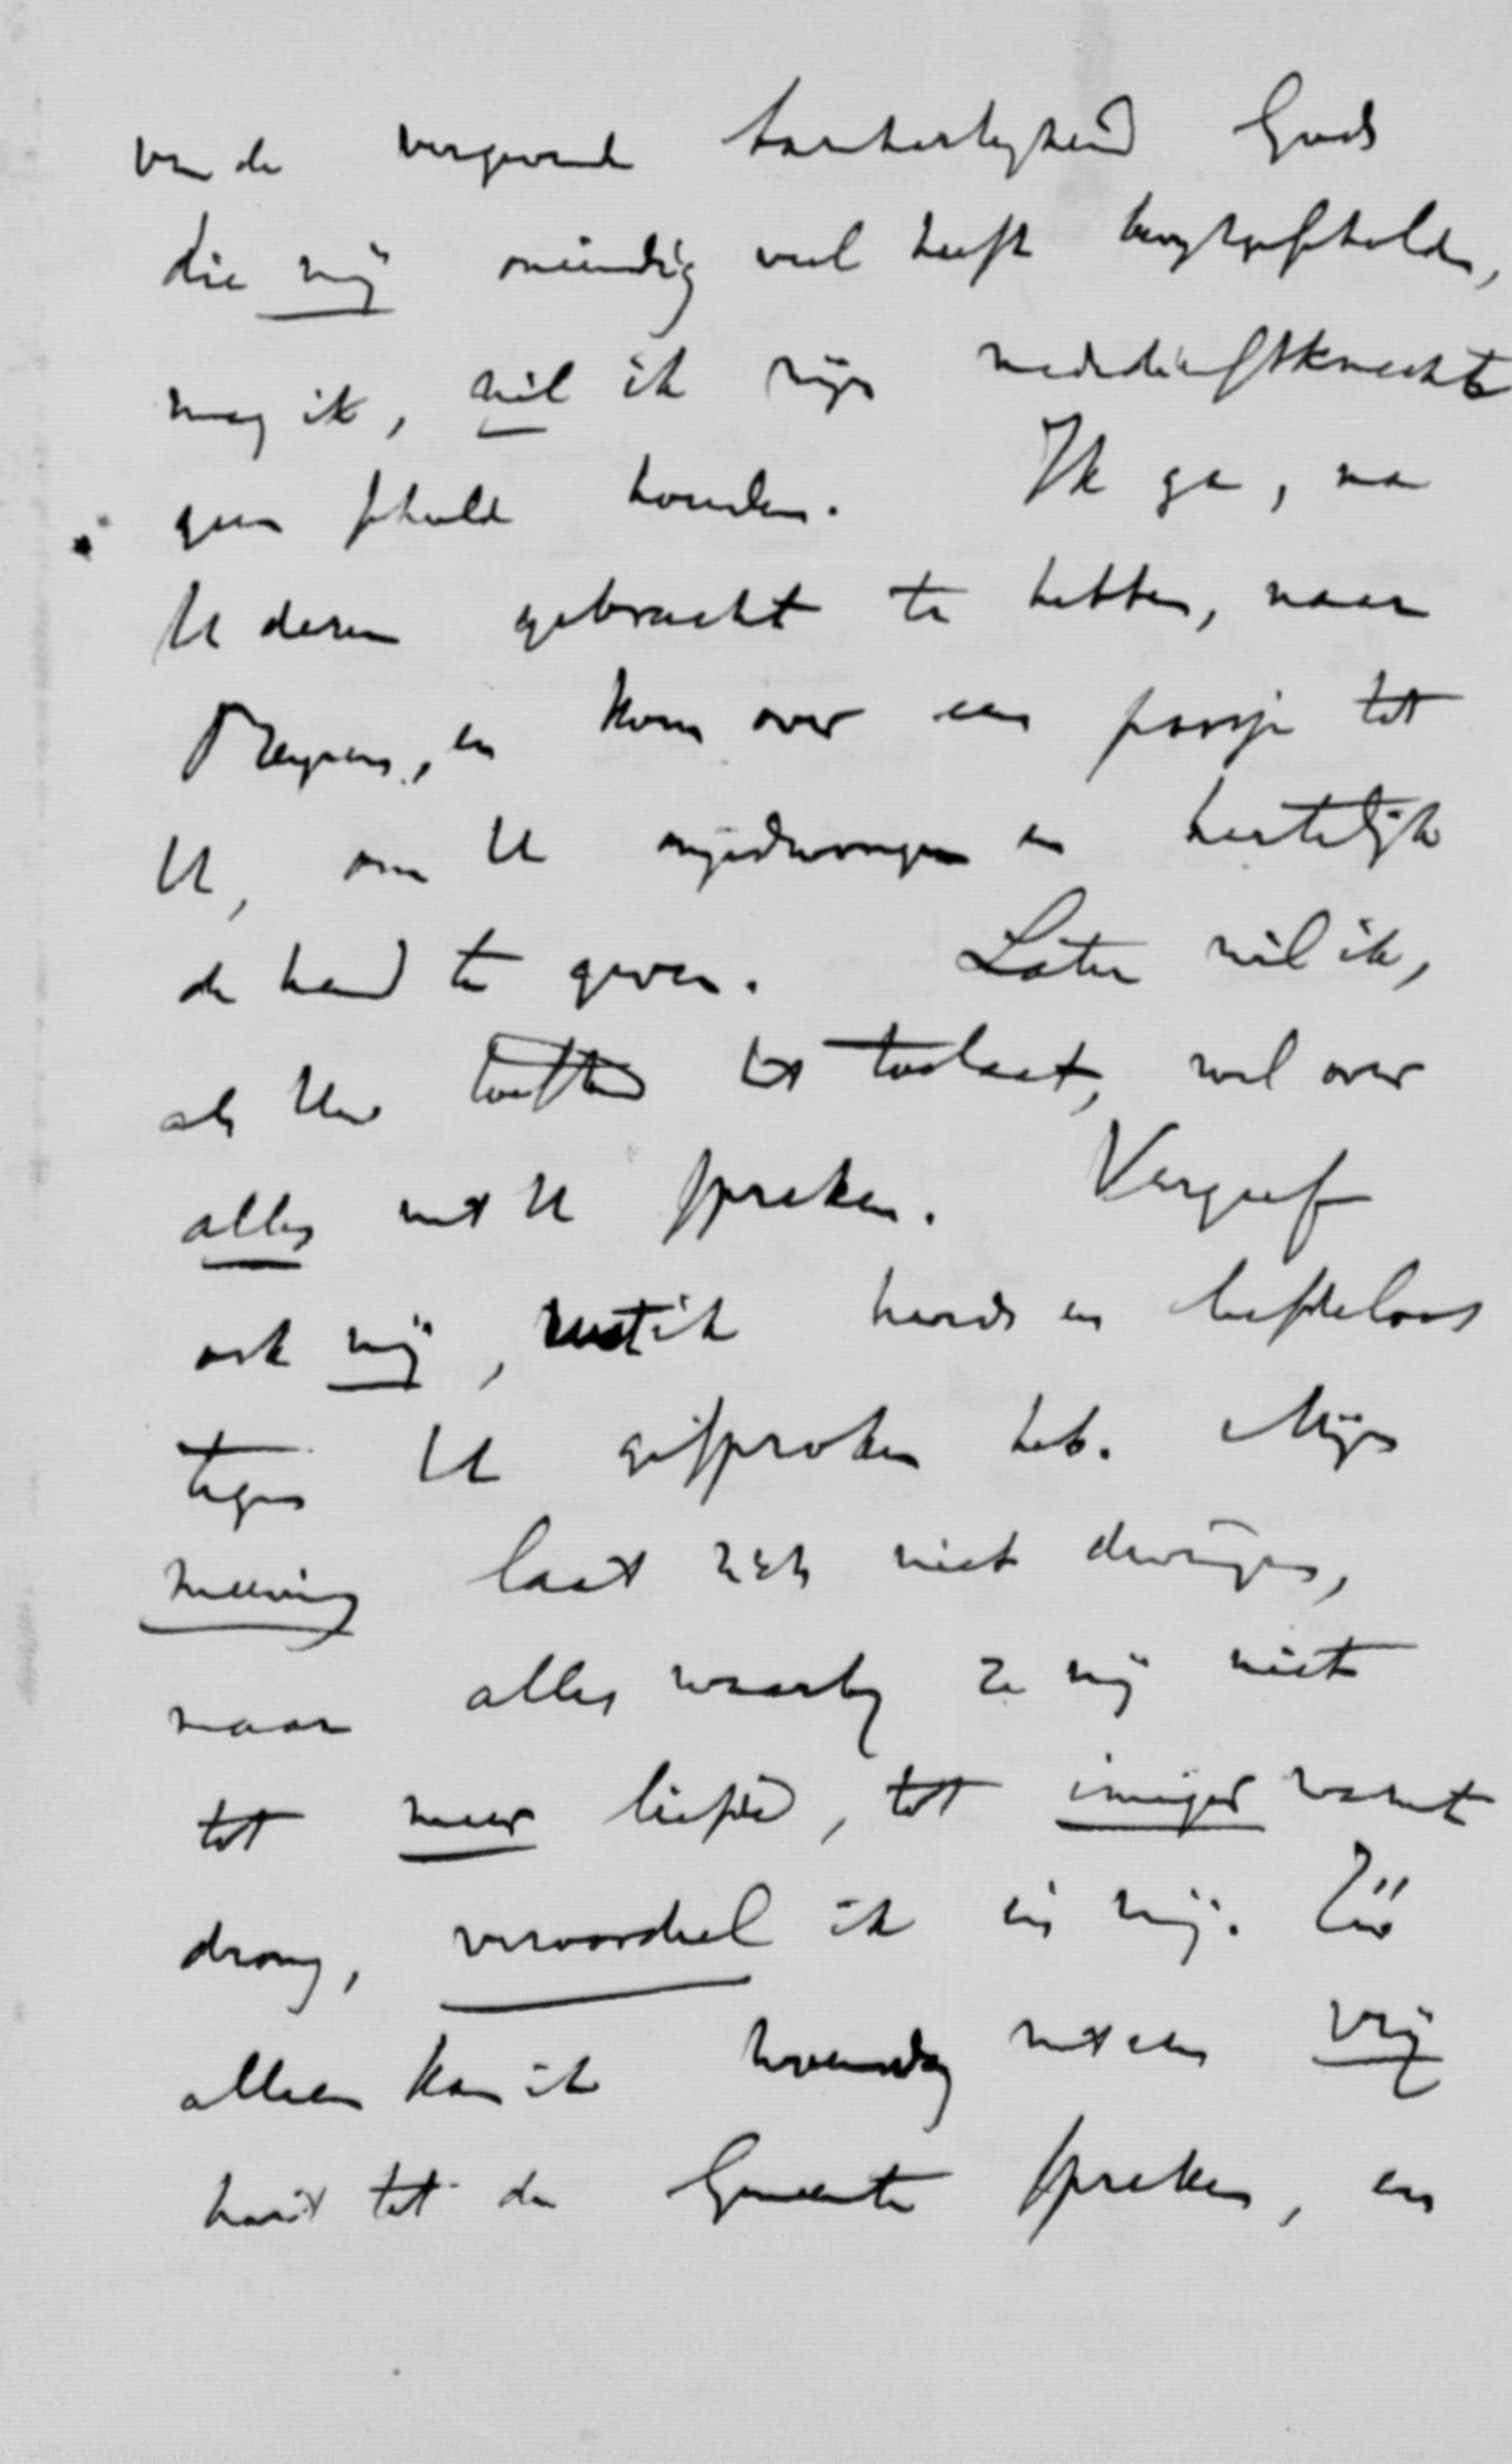 van de vergevende barmhartigheid Gods
die mij oneindig veel heeft kwijtgescholden,
mag ik, wil ik mijn mededienstknecht
geen schuld houden. Ik ga, na
U dezen gebracht te hebben, naar
en kom over een poosje tot
U, om U ongedwongen en hartelijk
de hand te geven. Later wil ik,
als Uw het toelaat, wel over
alles met U spreken. Vergeef
ook mij, wat ik hards en liefdeloos
tegen U gesproken heb. Mijn
meening laat zich niet dwingen,
maar alles waarbij ze mij niet
tot meer liefde, tot inniger
drong, veroordeel ik in mij. Zóó
alleen kan ik met een vrij
hart tot de Gemeente spreken, en